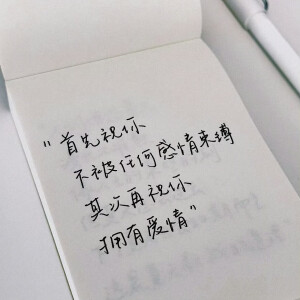 "首先祝你
不被任何感情束缚
其次再祝你
拥有爱情"